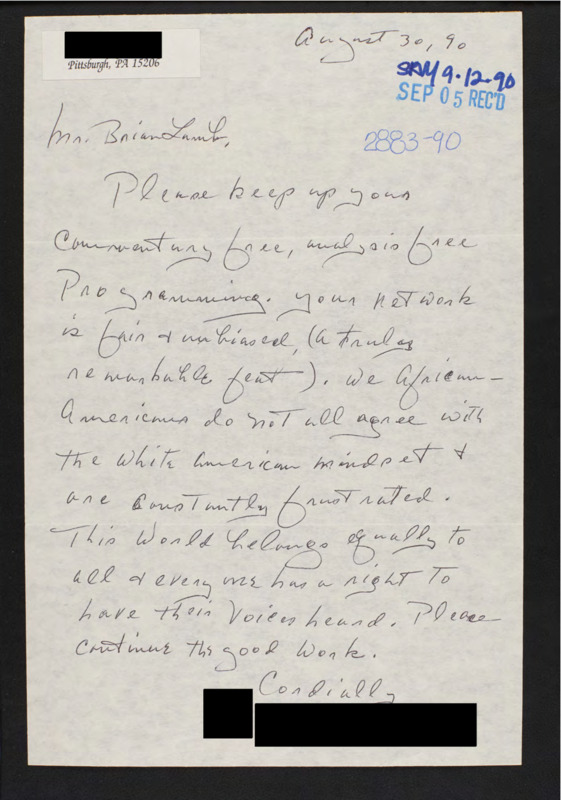 Pittsburgh, PA 15206
August 30, 90
SRM 9-12-90
SEP 05 REC'D
2883-90
Mr. Brian Lamb,
Please keep up your
Commentary free, analysis free
Programming. Your network
is fair & unbiased, (a truly
remarkable feat). We African-
Americans do not all agree with
the white American mindset &
are constantly frustrated.
This World belongs equally to
all & every one has a right to
have their Voices heard. Please
continue the good work.
Cordially